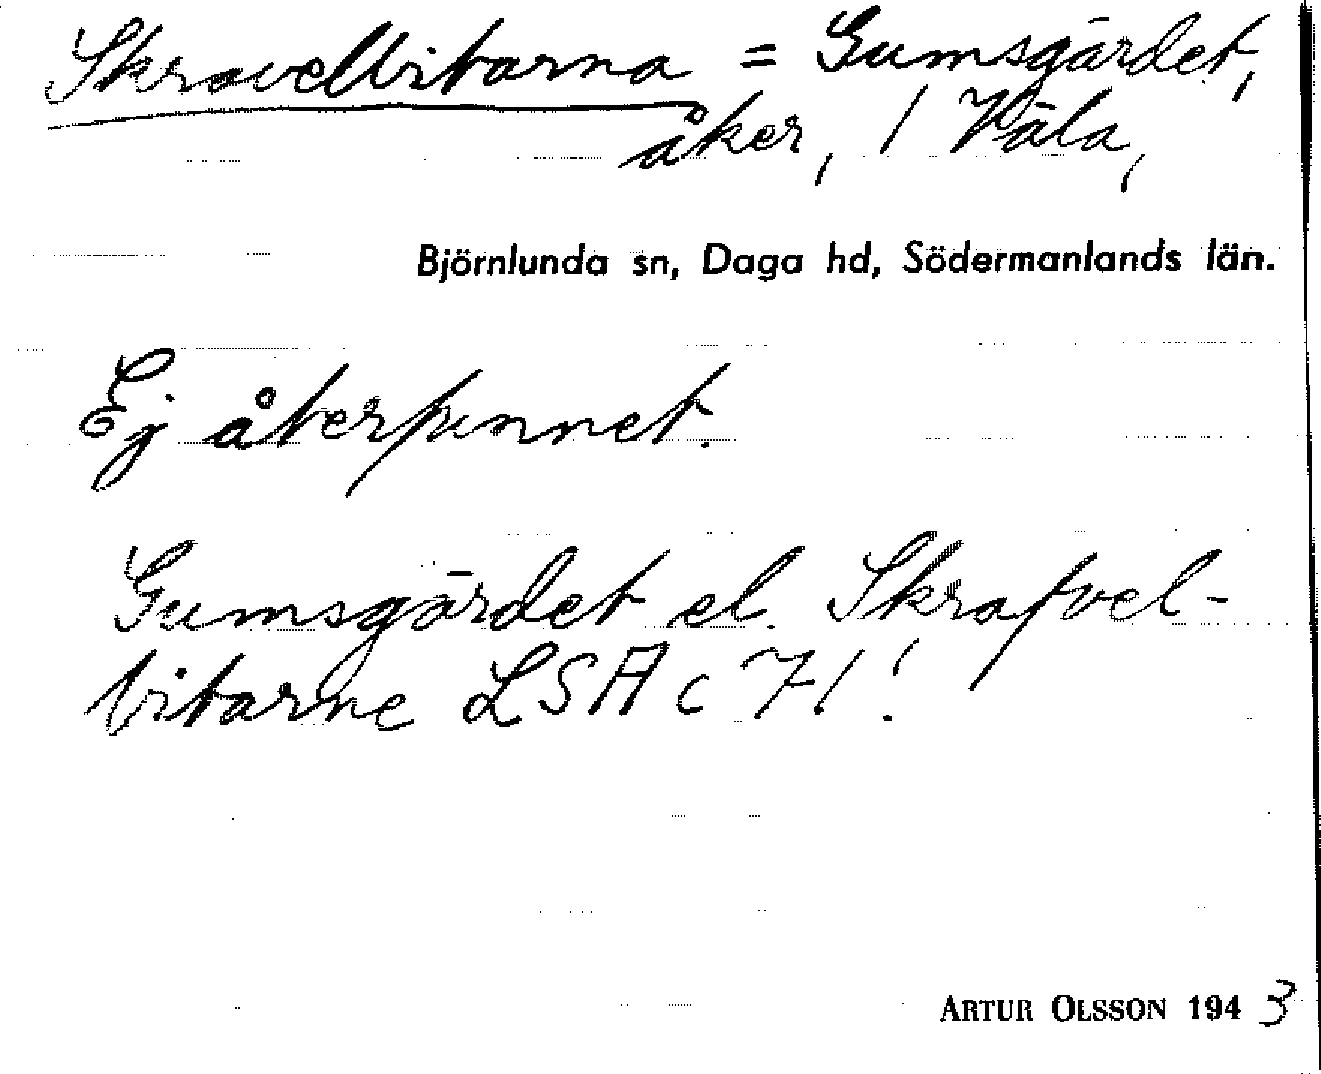 Skravelbitarna = Gumsgärdet,
åker, / Väla,
Björnlunda sn, Daga hd, Södermanlands län.
Ej återfunnet.
Gumsgärdet el. Skrafvel-
bitarne LSA c 71!
ARTUR OLSSON 1943